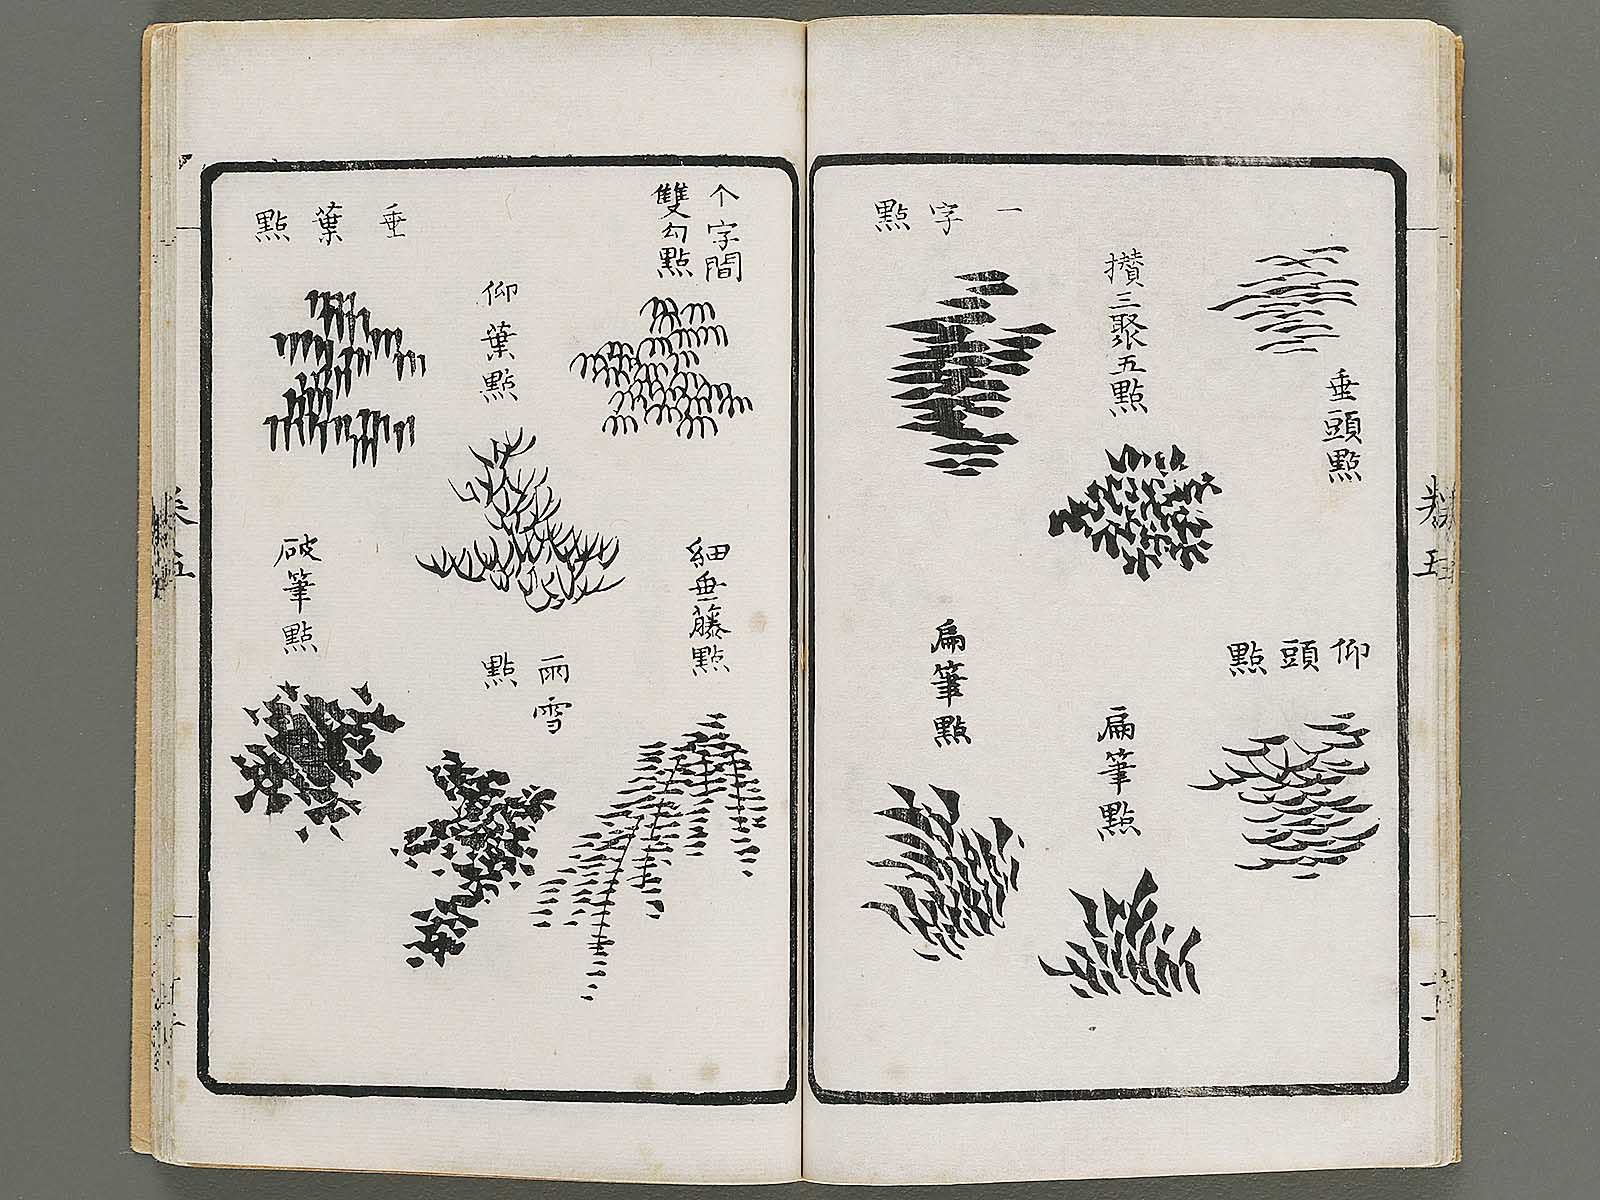 垂頭點
攅三聚五點
一字點
仰頭點
扁筆點
扁筆點
个字間
雙勾點
仰葉點
垂葉點
細垂藤點
雨雪
點
破筆點